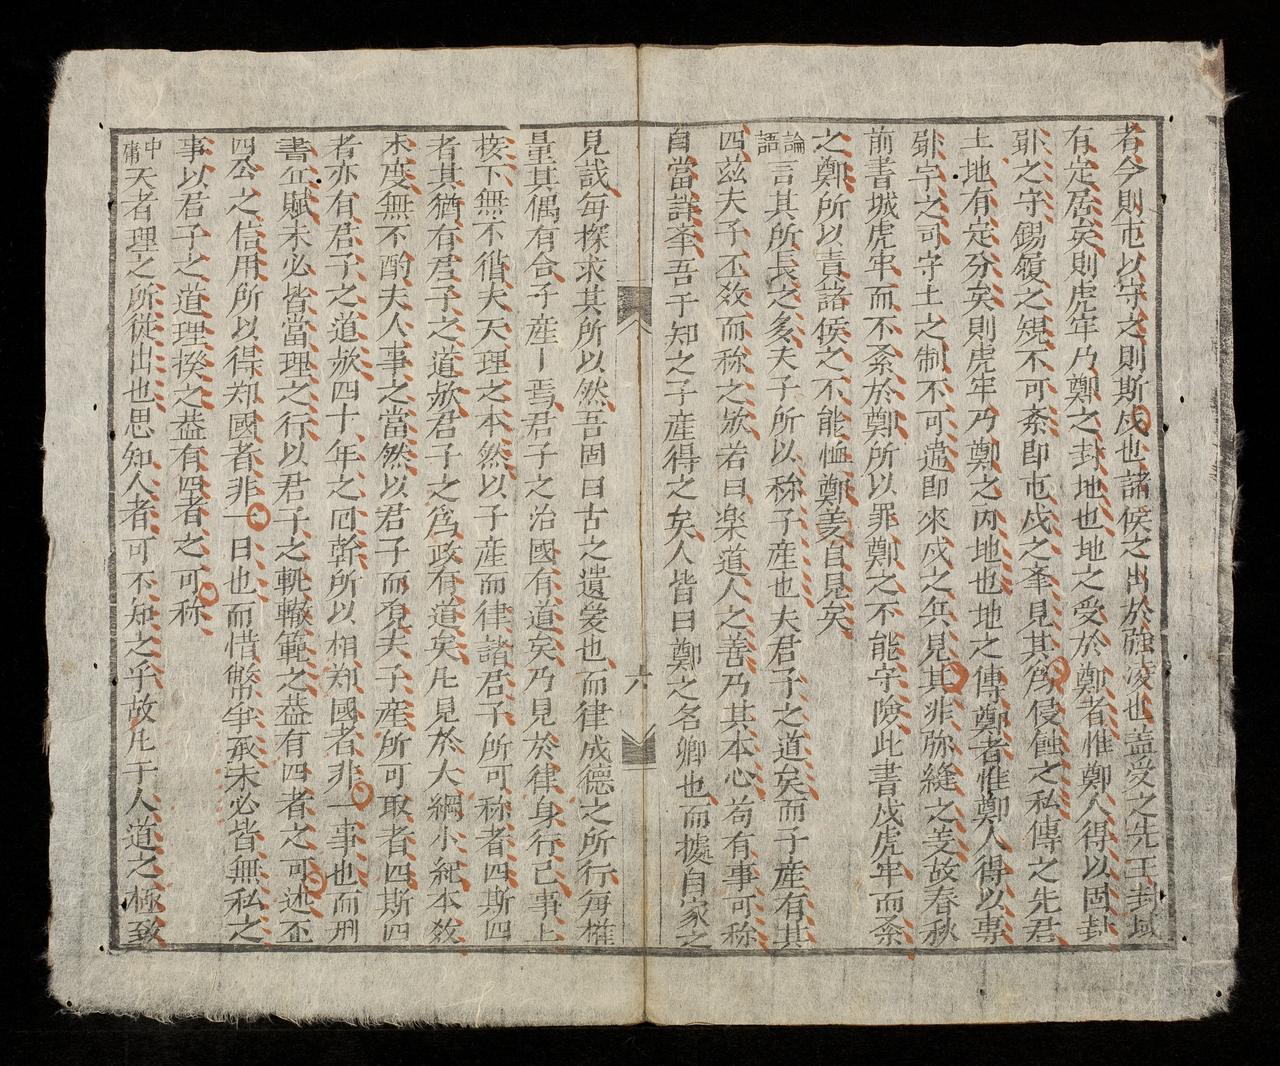 者今則屯以守之則斯戍也諸侯之出於強凌也蓋受之先王封域
有定居矣則虎牢乃鄭之封地也地之受於鄭者惟鄭人得以固封
之守錫履之䂓不可紊即屯戍之舉見其為侵蝕之私傳之先君
土地有定分矣則虎牢乃鄭之內地也地之傳鄭者惟鄭人得以專
字之司守土之制不可違即來戍之兵見其非弥縫之義故春秋
前書城虎牢而不系於鄭所以罪鄭之不能守險此書戍虎牢而系
之鄭所以責諸侯之不能恤鄭義自見矣
論語 言其所長之多夫子所以称子產也夫君子之道矣而子產有其
四兹夫子不敎而称之欤若曰楽道人之善乃其本心苟有事可称
自當詳舉吾于知之子產得之矣人皆曰鄭之名卿也而據自家之
六
見哉每探求其所以然吾固曰古之遺爱也而律成德之所行每權
量其偶有合子產焉君子之治國有道矣乃見於律身行己事上
接下無不循夫天理之本然以子產而律諸君子所可称者四斯四
者其猶有君子之道欤君子之為政有道矣凡見於大綱小紀本敎
末度無不酌夫人事之當然以君子而覓夫子產所可取者四斯四
者亦有君子之道欤四十年之囘幹所以相郑國者非一事也而刑
書丘賦未必皆當理之行以君子之軌轍範之蓋有四者之可述丕
四公之信用所以得郑國者非一日也而惜幣争承未必皆無私之
事以君子之道理揆之蓋有四者之可称
中庸 天者理之所從出也思知人者可不知之乎故凡于人道之極致